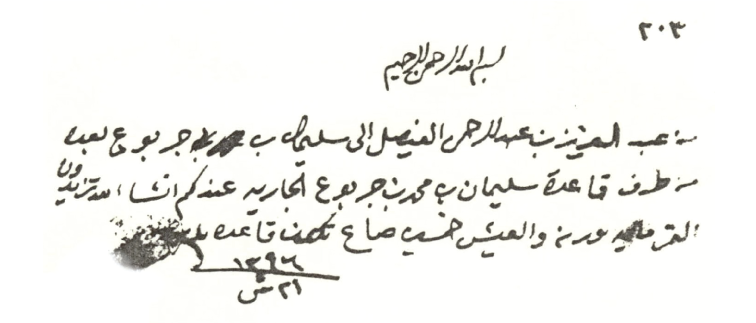 ٢٠٣
بسم الله الرحمن الرحيم
من عبد العزيز بن عبد الرحمن الفيصل الى سليمان ب جربوع بعده
من طرف قاعدة سليمان ب محمد بن جربوع الجاريه عندكم انشا الله تزيدون
التمر مايه وزنه والعيش خمسين صاع تكون قاعدة
١٣٩٦
٢١ ش